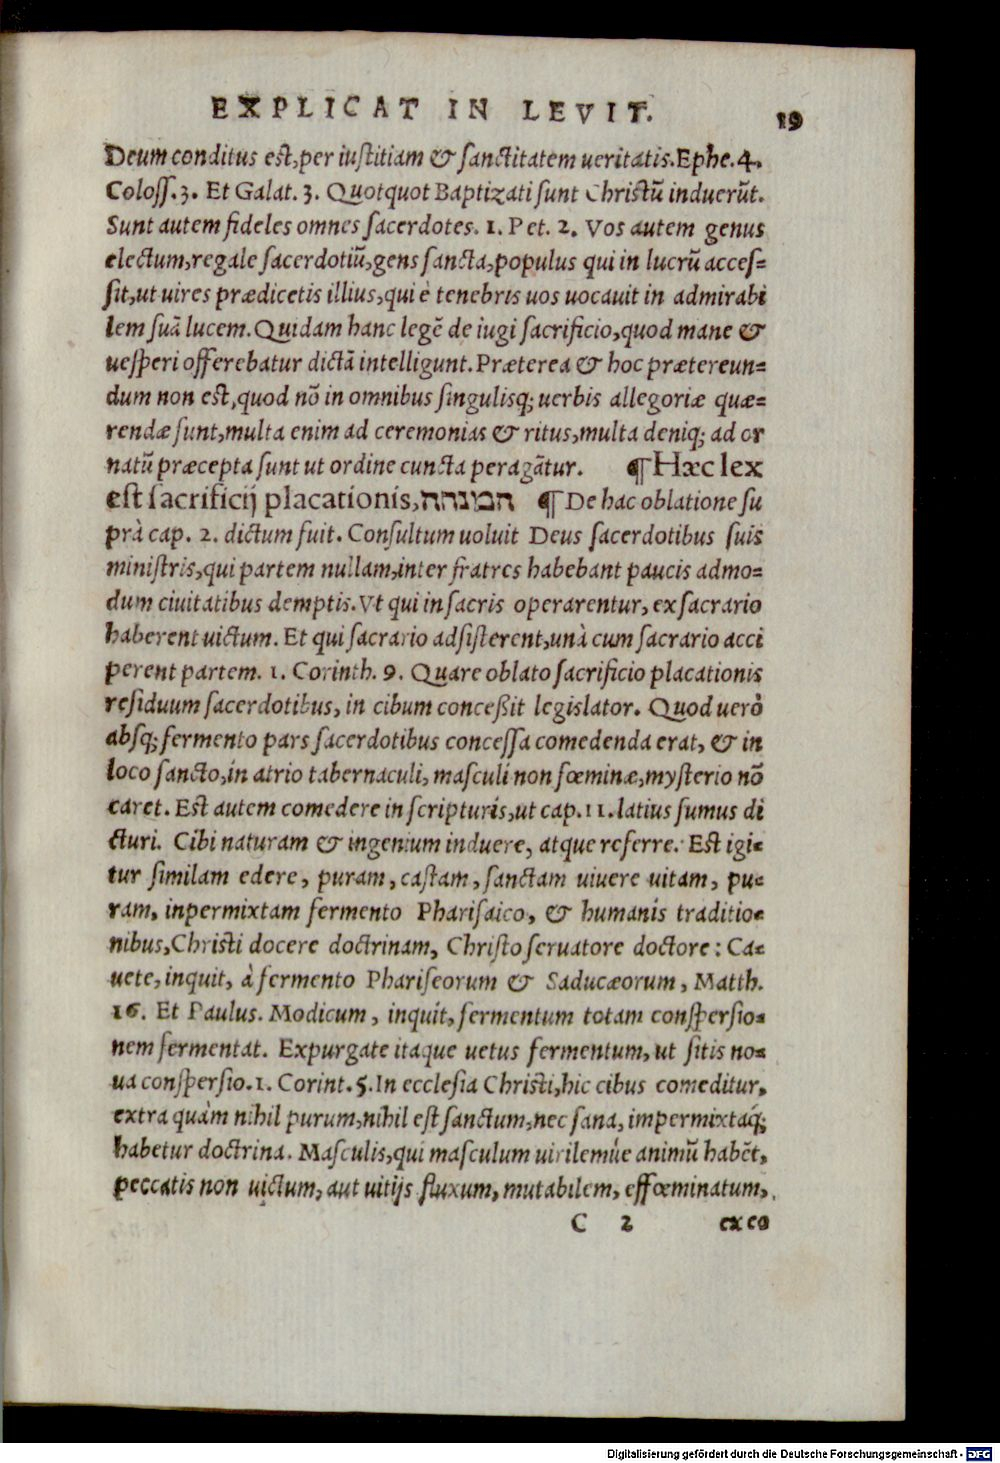 EXPLICAT IN LEVIT.
19
Deum conditus est, per iustitiam & sanctitatem ueritatis. Ephe. 4.
Coloss. 3. Et Galat. 3. Quotquot Baptizati sunt Christũ induerũt.
Sunt autem fideles omnes sacerdotes. 1. Pet. 2. Vos autem genus
electum, regale sacerdotiũ, gens sancta, populus qui in lucrũ acces=
sit, ut uires prædicetis illius, qui è tenebris uos uocauit in admirabi
lem suã lucem. Quidam hanc legẽ de iugi sacrificio, quod mane &
uesperi offerebatur dictã intelligunt. Præterea & hoc prætereun=
dum non est, quod nõ in omnibus singulisq; uerbis allegoriæ quæ=
rendæ sunt, multa enim ad ceremonias & ritus, multa deniq; ad or
natũ præcepta sunt ut ordine cuncta peragãtur. ¶ Hæc lex
est sacrificij placationis, המנחה ¶ De hac oblatione su
prà cap. 2. dictum fuit. Consultum uoluit Deus sacerdotibus suis
ministris, qui partem nullam, inter fratres habebant paucis admo=
dum ciuitatibus demptis. Vt qui in sacris operarentur, ex sacrario
haberent uictum. Et qui sacrario adsisterent, unà cum sacrario acci
perent partem. 1. Corinth. 9. Quare oblato sacrificio placationis
residuum sacerdotibus, in cibum concessit legislator. Quod uerò
absq; fermento pars sacerdotibus concessa comedenda erat, & in
loco sancto, in atrio tabernaculi, masculi non fœminæ, mysterio nõ
caret. Est autem comedere in scripturis, ut cap. 11. latius sumus di
cturi. Cibi naturam & ingenium induere, atque referre. Est igi=
tur similam edere, puram, castam, sanctam uiuere uitam, pu=
ram, inpermixtam fermento Pharisaico, & humanis traditio=
nibus, Christi docere doctrinam, Christo seruatore doctore: Ca=
uete, inquit, à fermento Phariseorum & Saducæorum, Matth.
16. Et Paulus. Modicum, inquit, fermentum totam conspersio=
nem fermentat. Expurgate itaque uetus fermentum, ut sitis no=
ua conspersio. 1. Corint. 5. In ecclesia Christi, hic cibus comeditur,
extra quàm nihil purum, nihil est sanctum, nec sana, impermixtaq́;
habetur doctrina. Masculis, qui masculum uirilemúe animũ habẽt,
peccatis non uictum, aut uitijs fluxum, mutabilem, effœminatum,
C 2 exeo
Digitalisierung gefördert durch die Deutsche Forschungsgemeinschaft - DFG